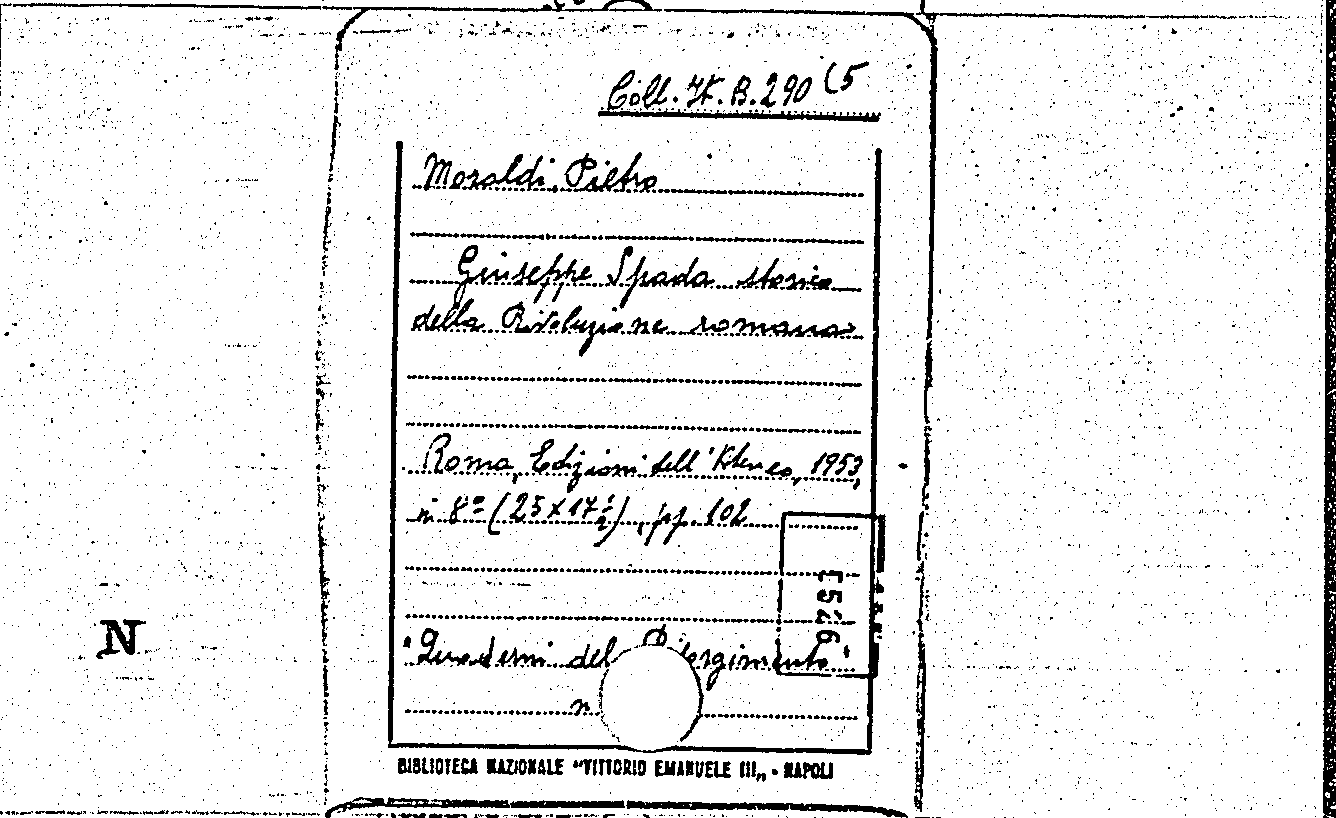 Coll. It. B. 290 (5
Moraldi, Pietro
Giuseppe Spada storico
della Rivoluzione romana
Roma, Edizioni dell'Ateneo, 1953,
in 8º (25x17½), pp. 102
"Quaderni del
n.
E526
N
BIBLIOTECA NAZIONALE "VITTORIO EMANUELE III„ - NAPOLI